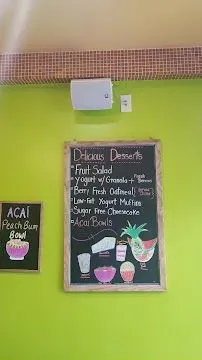 Delicious Desserts
Fruit Salad
Yogurt w/ Granola +
Berry Fresh Oatmeal
Low-Fat Yogurt Muffins
Sugar Free Cheesecake
Acai Bowls
ACAÍ
Peach Bum
Bowl